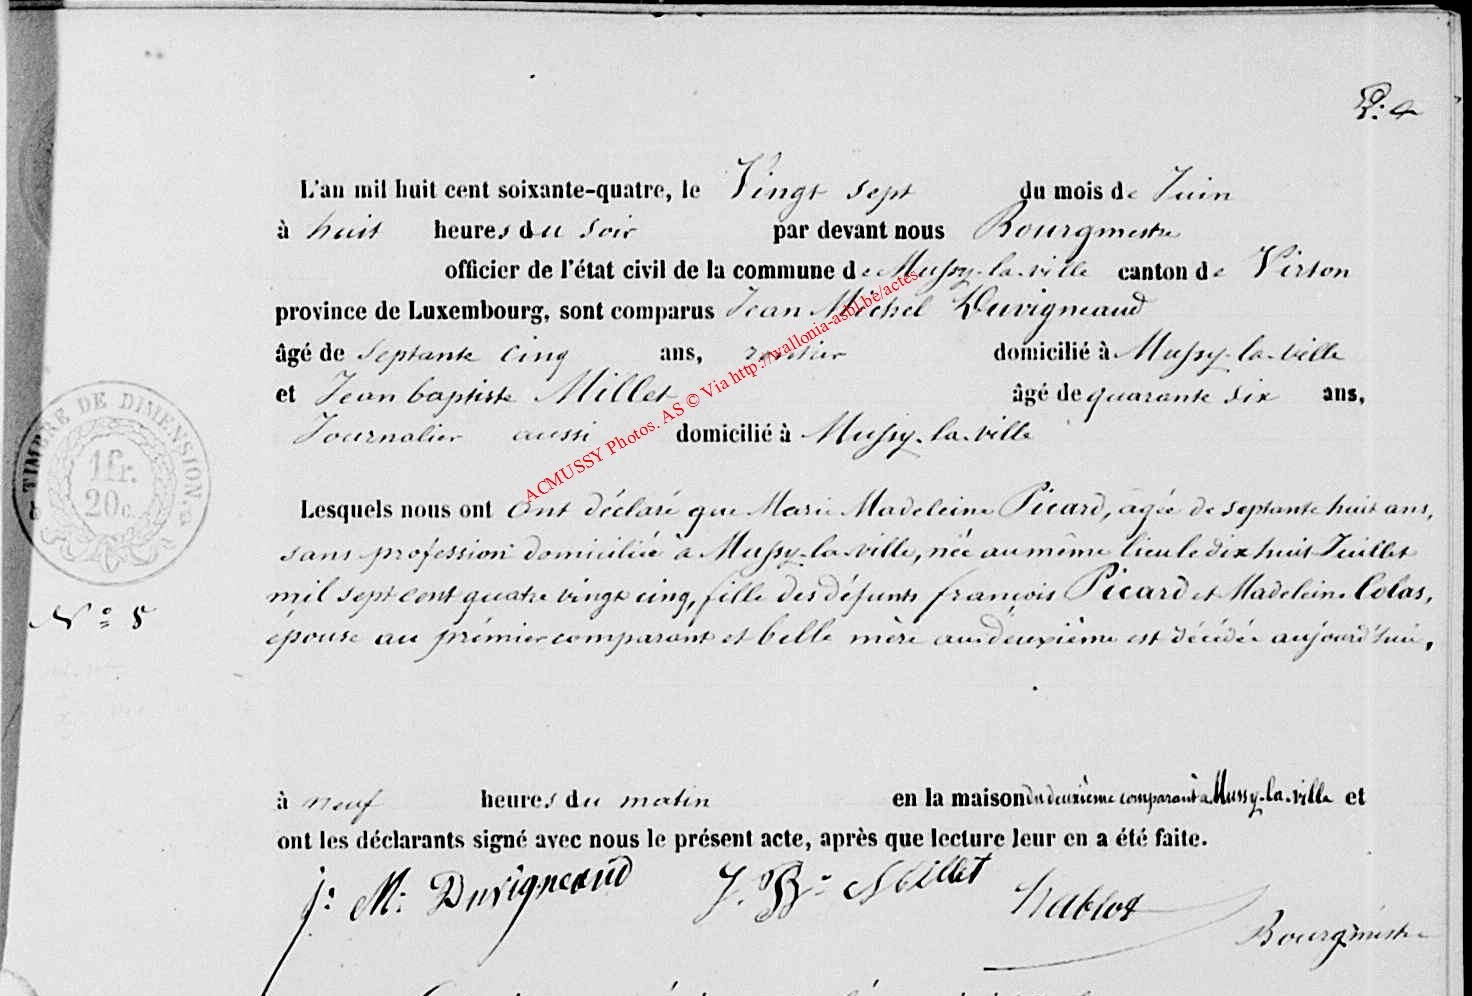 L'an mil huit cent soixante-quatre, le Vingt sept du mois de Juin
à huit heures du soir par devant nous Bourgmestre
officier de l'état civil de la commune de Mussy-la-ville canton de Virton
province de Luxembourg, sont comparus Jean Michel Duvigneaud
âgé de septante cinq ans, rentier domicilié à Mussy-la-ville
et Jean baptiste Millet âgé de quarante six ans,
Journalier aussi domicilié à Mussy-la-ville
TIMBRE DE DIMENSION
1 fr.
20 c.
ACMUSSY Photos. AS © Via http://wallonia-asbl.be/actes
Lesquels nous ont ont déclaré que Marie Madeleine Picard, agée de septante huit ans,
sans profession domiciliée à Mussy-la-ville, née au même lieu le dix huit Juillet
mil sept cent quatre vingt cinq, fille des défunts françois Picard et Madeleine Colas,
N° 8
épouse au prémier comparant et belle mère au deuxième est décédée aujourd'hui,
à neuf heures du matin en la maison du deuxième comparant à Mussy-la-ville et
ont les déclarants signé avec nous le présent acte, après que lecture leur en a été faite.
J. M. Duvigneaud J. B. Millet
Bourgmestre